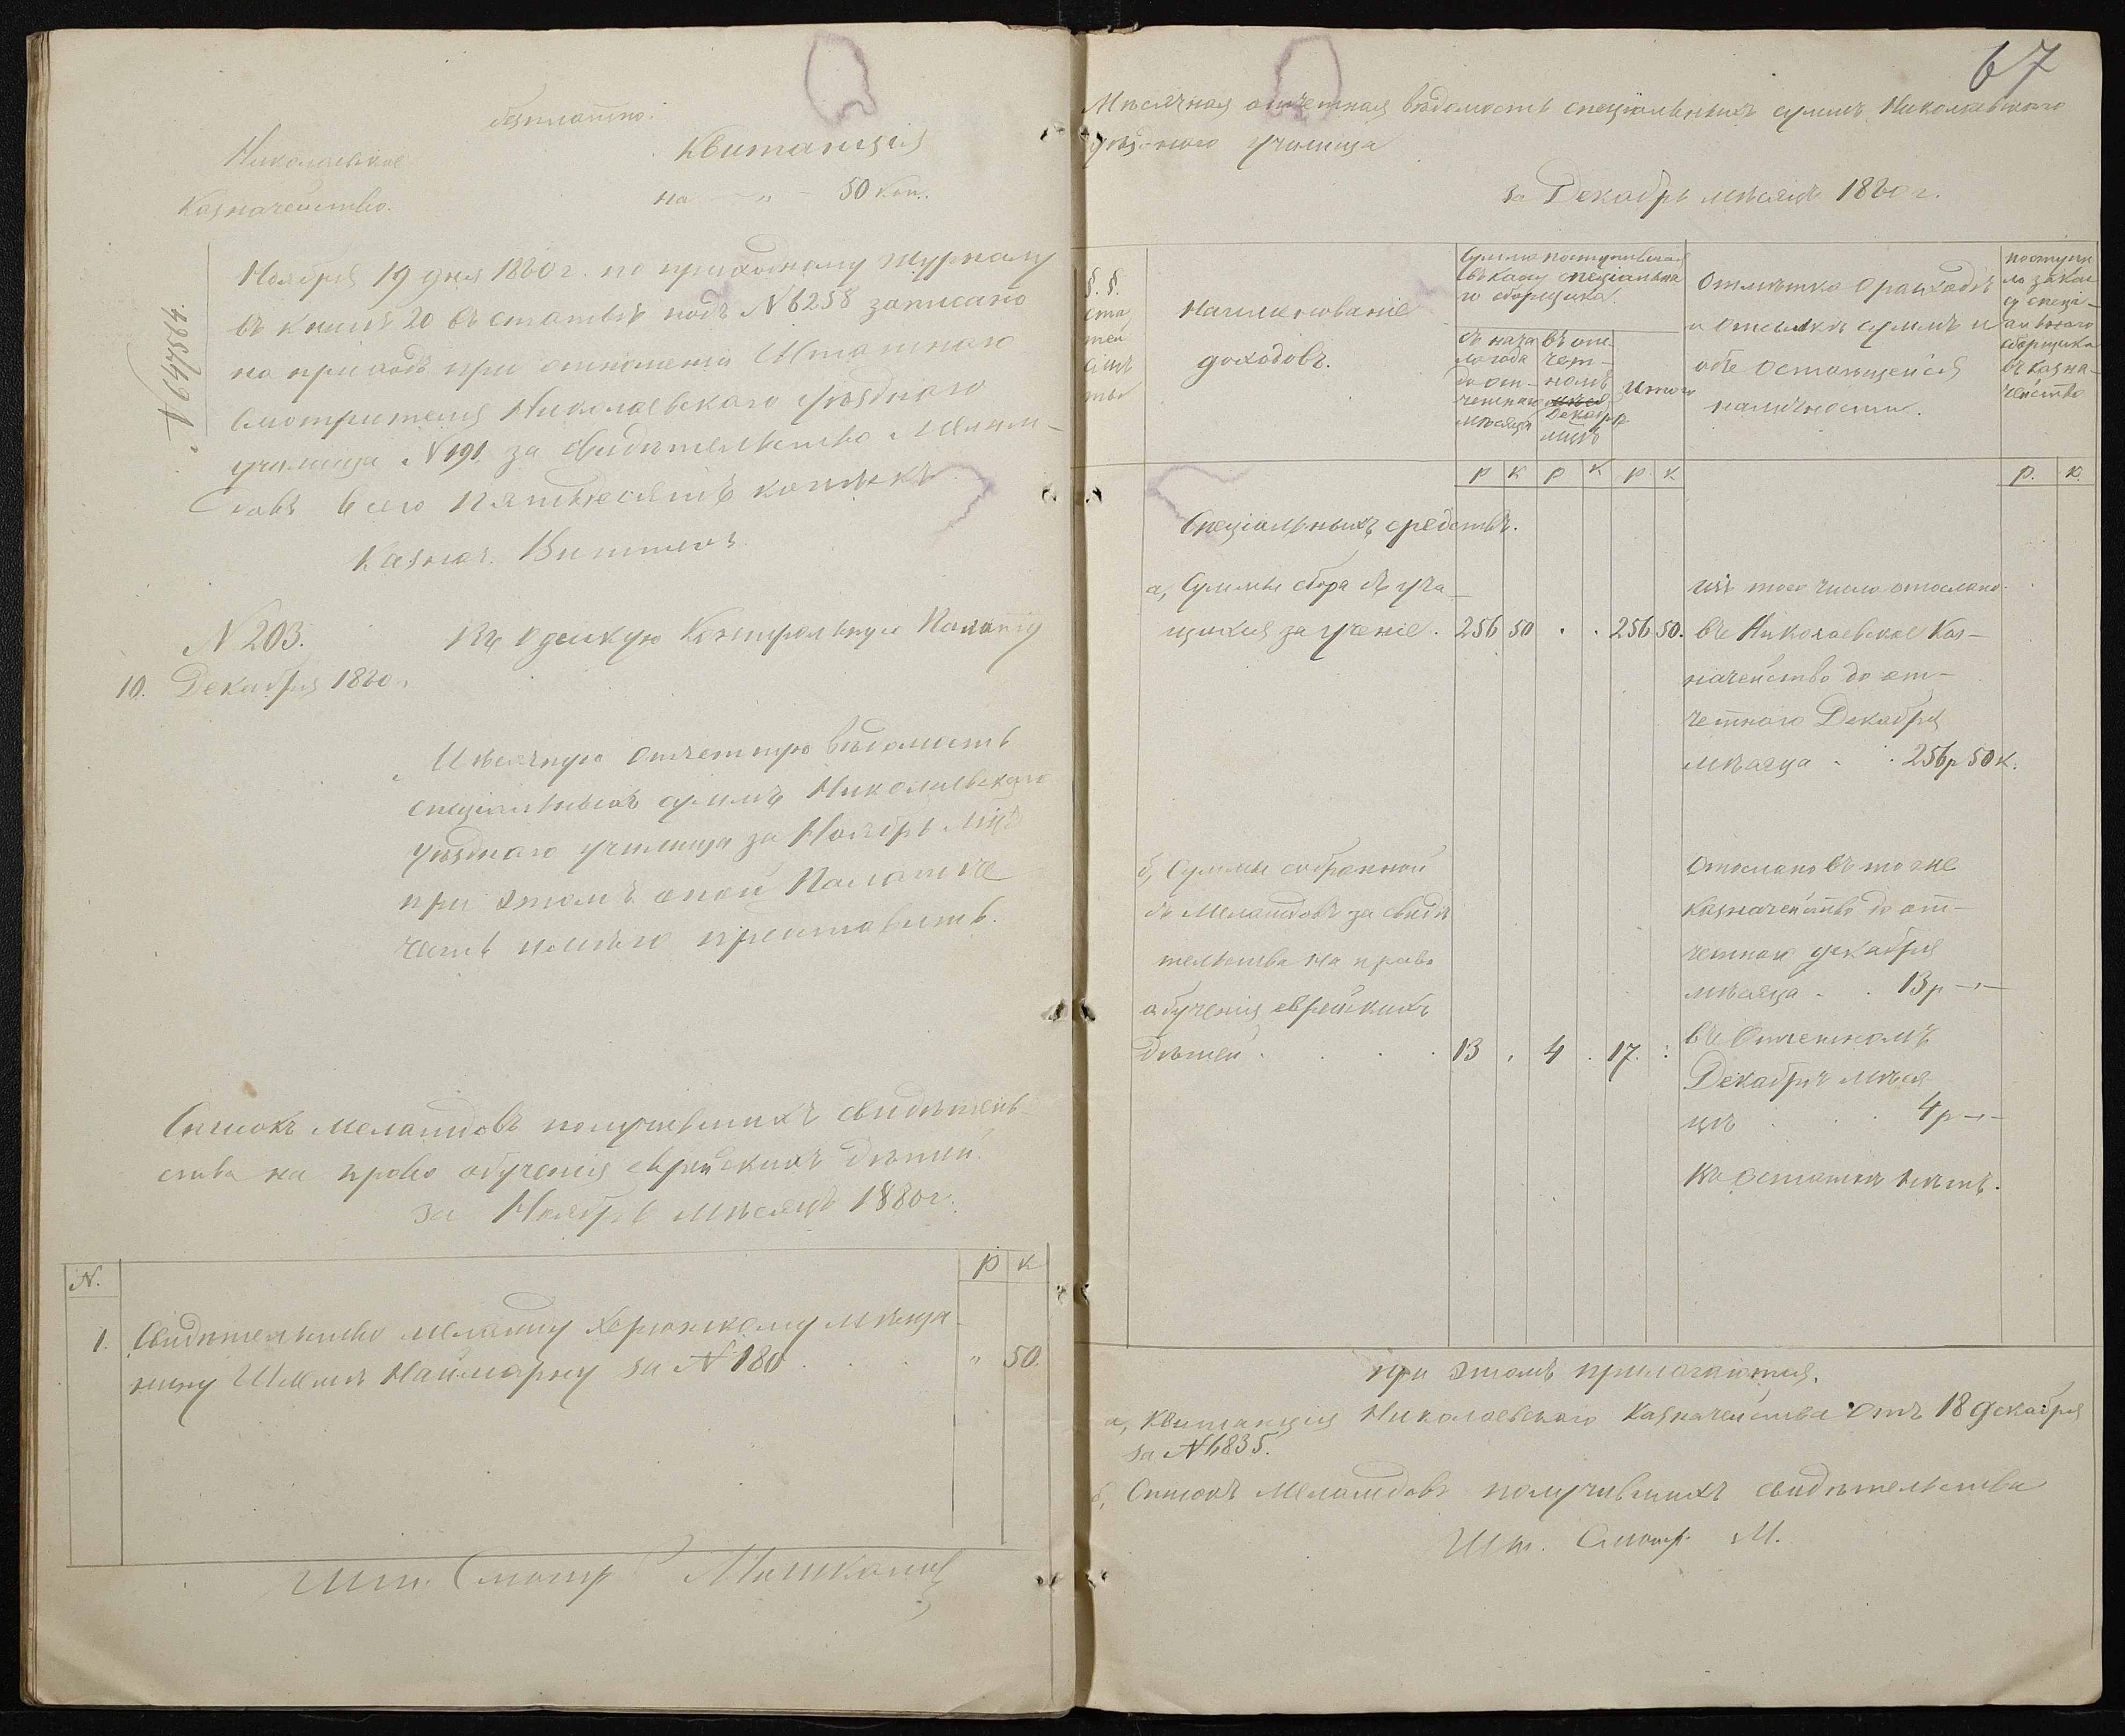 безплатно.
Николаевское
Казначейство.
Квитанція
на — „ — 50 коп.
№ 494584.
Ноября 19 дня 1880 г. по приходному журналу
въ книгѣ 20 въ статьѣ подъ № 6258 записано
на приходъ при отношеніи Штатнаго
Смотрителя Николаевскаго уѣзднаго
училища № 191 за свидѣтельство Мелам-
довъ всего пятьдесятъ копѣекъ
Казнач.
№ 203.
10. Декабря 1880 г.
Въ Одесскую Контрольную Палату
Мѣсячную отчетную вѣдомость
спеціальныхъ суммъ Николаевскаго
уѣзднаго училища за Ноябрь м-цъ
при этомъ оной Палатѣ
честь имѣю представить.
Списокъ меламдовъ получившихъ свидѣтель-
ства на право обученія еврейскихъ дѣтей
за Ноябрь мѣсяцъ 1880 г.
N. р к
1. Свидѣтельство меламду Херсонскому мѣща-
нину Наймарку за № 180 . . . „ 50.
Шт. Смотр
67
Мѣсячная отчетная вѣдомость спеціальныхъ суммъ Николаевскаго
уѣзднаго училища
за Декабрь мѣсяцъ 1880 г.
§.§.
ста
тей
смѣ
ты
Наименованіе
доходовъ.
Сумма поступившая
въ кассу спеціальна
го сборщика
съ нача
ла года
до от-
четнаго
мѣсяца
въ от-
чет-
номъ
мѣся
Декабрѣ
м-цѣ
Итого
Отмѣтка о расходѣ
и отсылкѣ суммъ и
объ остающейся
наличности.
поступи
ло за кас
су спеці-
альнаго
сборщика
въ казна-
чейство
р к р к р к р. к.
Спеціальныхъ средствъ.
а, Суммы сбора съ уча-
щихся за ученіе. 256 50 . . 256 50.
изъ того число отослано
въ Николаевское Каз-
начейство до от-
четнаго Декабря
мѣсяца . . 256 р 50 к.
б, Суммы собранной
съ Меламдовъ за свидѣ
тельства на право
обученія еврейскихъ
дѣтей . . . . 13 . 4 . 17. :
Отослано въ то же
казначейство до от-
четнаго декабря
мѣсяца . . 13 р —
въ Отчетномъ
Декабрѣ мѣся
цѣ . . . 4 р —
Въ остаткѣ нѣтъ.
при этомъ прилагаются.
а, Квитанція Николаевскаго Казначейства отъ 18 декабря
за № 6835.
б, Списокъ Меламдовъ получившихъ свидѣтельства
Шт. Смотр. М.